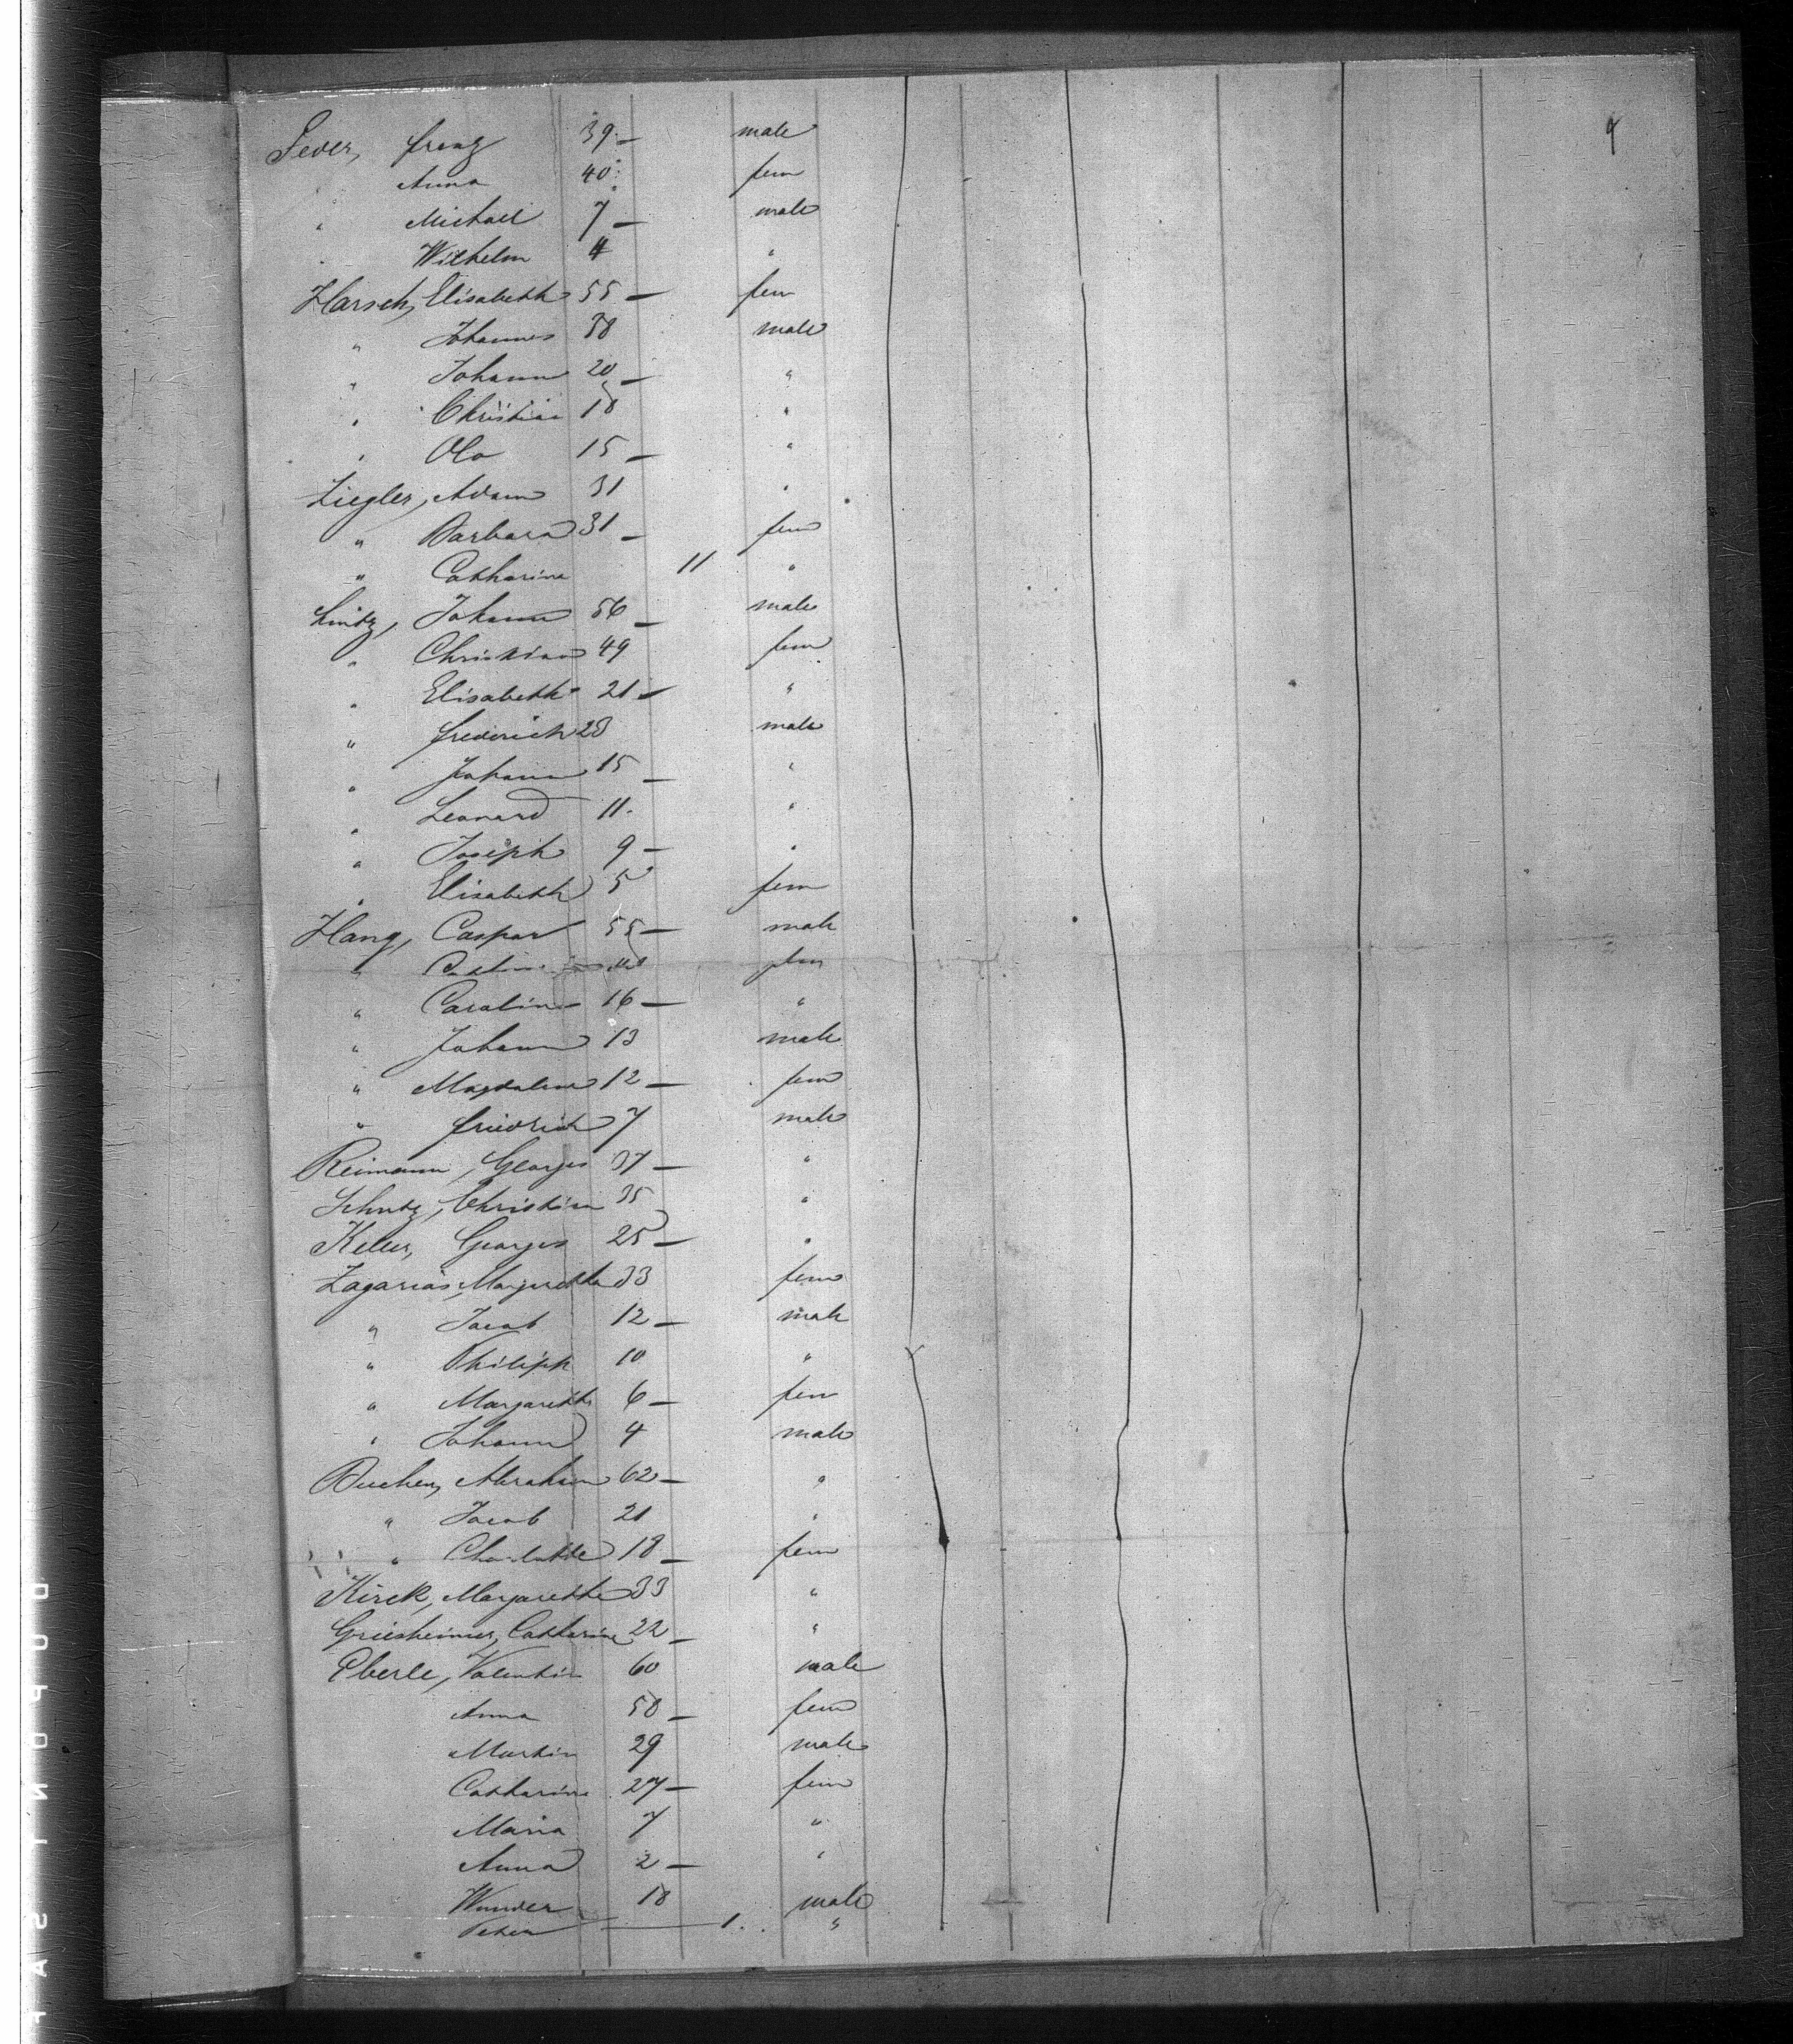 9
Sever, Franz 39 — male
" Anna 40 fem
" Michael 7 — male
" Wilhelm 4 "
Harsch, Elisabeth 55 — fem
" Johannes 38 male
" Johann 20 — "
" Christian 18 "
" Olo 15 — "
Ziegler, Adam 31 "
" Barbara 31 — fem
" Catharina 11 "
Lintz, Johann 56 — male
" Christian 49 fem
" Elisabeth 21 — "
" Frederich 28 male
" Johann 15 — "
" Leonard 11 "
" Joseph 9 — "
" Elisabeth 5 fem
Hang, Caspar 55 — male
" fem
" Caroline 16 — "
" Johann 13 male
" Magdalena 12 — fem
" Friedrich 7 male
Reimann, Georges 37 — "
Schutz, Christian 35 "
Keller, Georges 25 — "
Zagarias, Margaretha 33 fem
" Jacob 12 — male
" Philiph 10 "
" Margaretha 6 — fem
" Johann 4 male
Bucher, Abraham 62 — "
" Jacob 21 "
" Charlotte 18 — fem
Kirck, Margaretha 33 "
Griesheimer, Catharine 22 — "
Eberle, Valentin 60 male
Anna 50 — fem
Martin 29 male
Catharina 27 — fem
Maria 7 "
Anna 2 — "
Wunder 18 male
Peter — 1. "